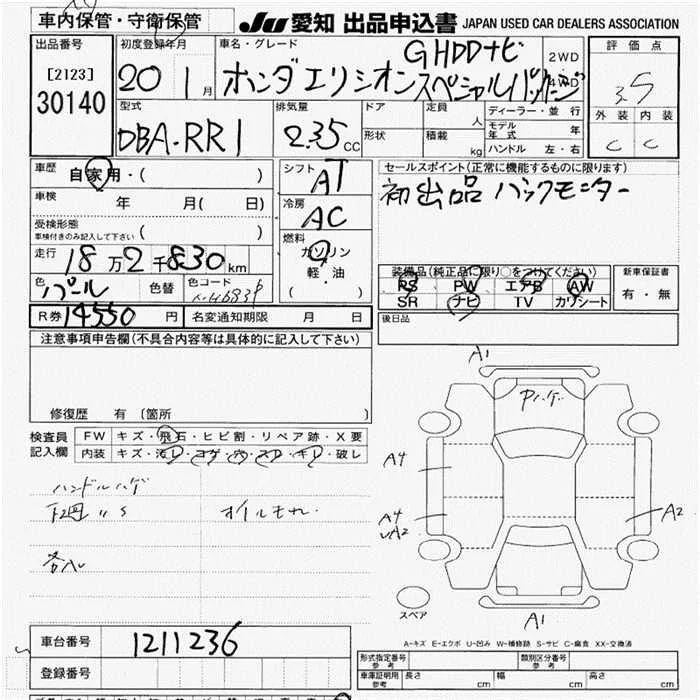 車内保管・守衛保管
JU 愛知 出品申込書 JAPAN USED CAR DEALERS ASSOCIATION
出品番号
[2123]
30140
初度登録年月
20 1月
車名・グレード
GHDDナビ
ホンダエリシオンスペシャルパッケージ
2WD
4WD
評価点
3.5
外装 内装
C C
型式
DBA-RR1
排気量
2.35 CC
ドア
形状
定員 人
積載 kg
ディーラー・並行
モデル年式 年
ハンドル 左・右
車歴 自家用・( )
車検 年 月( 日)
受検形態
車検付きのみ記入して下さい ( )
走行 18万2千830km
色 パール 色替 色コード
R券 14550円 名変通知期限 月 日
シフト AT
冷房 AC
燃料
ガソリン
軽・油
( )
セールスポイント(正常に機能するものに限ります)
初出品 バックモニター
装備品(純正品に限り○をつけてください)
PS PW エアB AW
SR ナビ TV カワシート
新車保証書
有・無
後日品
注意事項申告欄(不具合内容等は具体的に記入して下さい)
修復歴 有 〔箇所 〕
検査員記入欄
FW キズ・飛石・ヒビ割・リペア跡・X要
内装 キズ・汚レ・コゲ・穴・スレ・キレ・破レ
ハンドルハゲ
下廻りS オイルモレ
A1
A4
A4
A2
A2
A1
スペア
A-キズ E-エクボ U-凹み W-補修跡 S-サビ C-腐食 XX-交換済
車台番号 1211236
登録番号
形式指定番号 参考
類別区分番号 参考
車庫証明用 参考 長さ cm 幅 cm 高さ cm